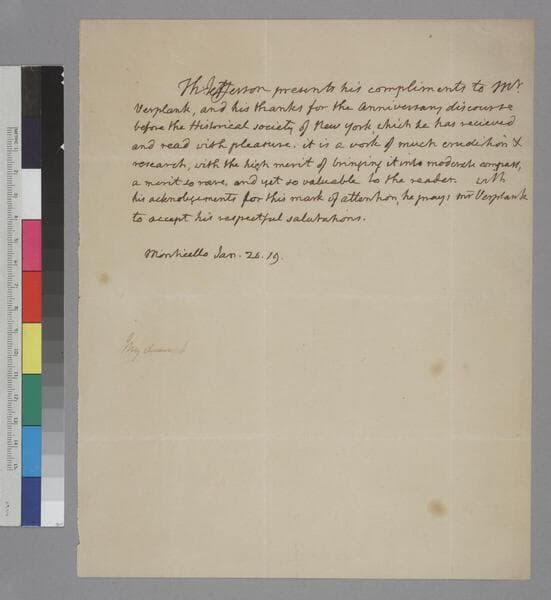 Th Jefferson presents his compliments to Mr.
Verplank, and his thanks for the Anniversary discourse
before the Historical society of New York, which he has recieved
and read with pleasure. it is a work of much erudition &
research, with the high merit of bringing it into moderate compass,
a merit so rare, and yet so valuable to the reader. with
his acknolegements for this mark of attention, he prays mr Verplank
to accept his respectful salutations.
Monticello Jan. 20. 19.